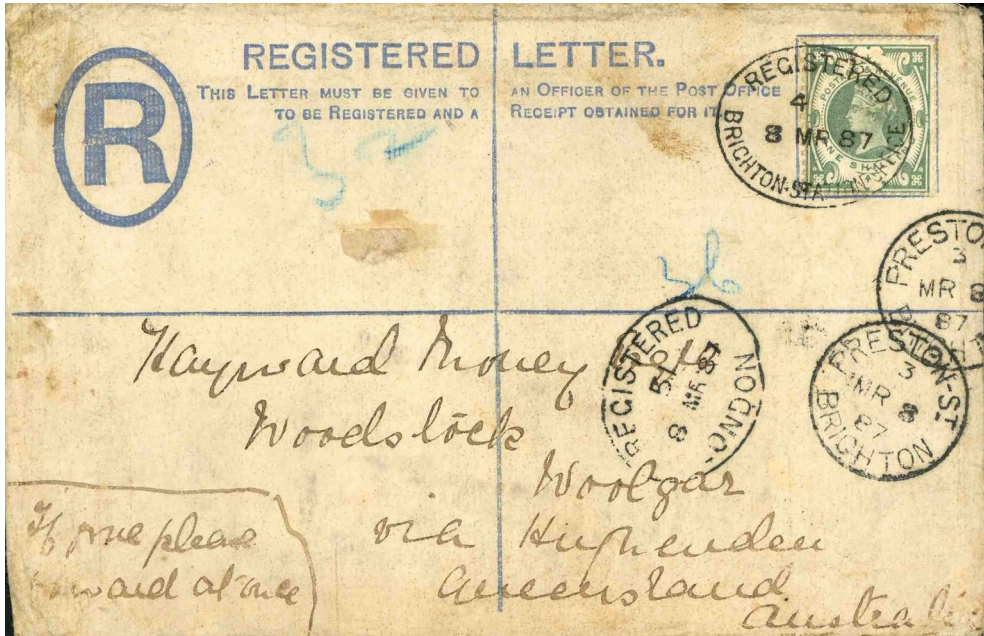 REGISTERED LETTER.
THIS LETTER MUST BE GIVEN TO AN OFFICER OF THE POST OFFICE
TO BE REGISTERED AND A RECEIPT OBTAINED FOR IT.
R
REGISTERED
4
8 MR 87
BRIGHTON-STATION
POSTAGE REVENUE
ONE SH
PRESTON
3
MR 8
87
BRIGHT
PRESTON-ST
3
MR 8
87
BRIGHTON
REGISTERED
8 MR 87
LONDON
Hayward Money
Woodstock
Woolgar
via Hughenden
Queensland
Australia
If gone please
forward at once